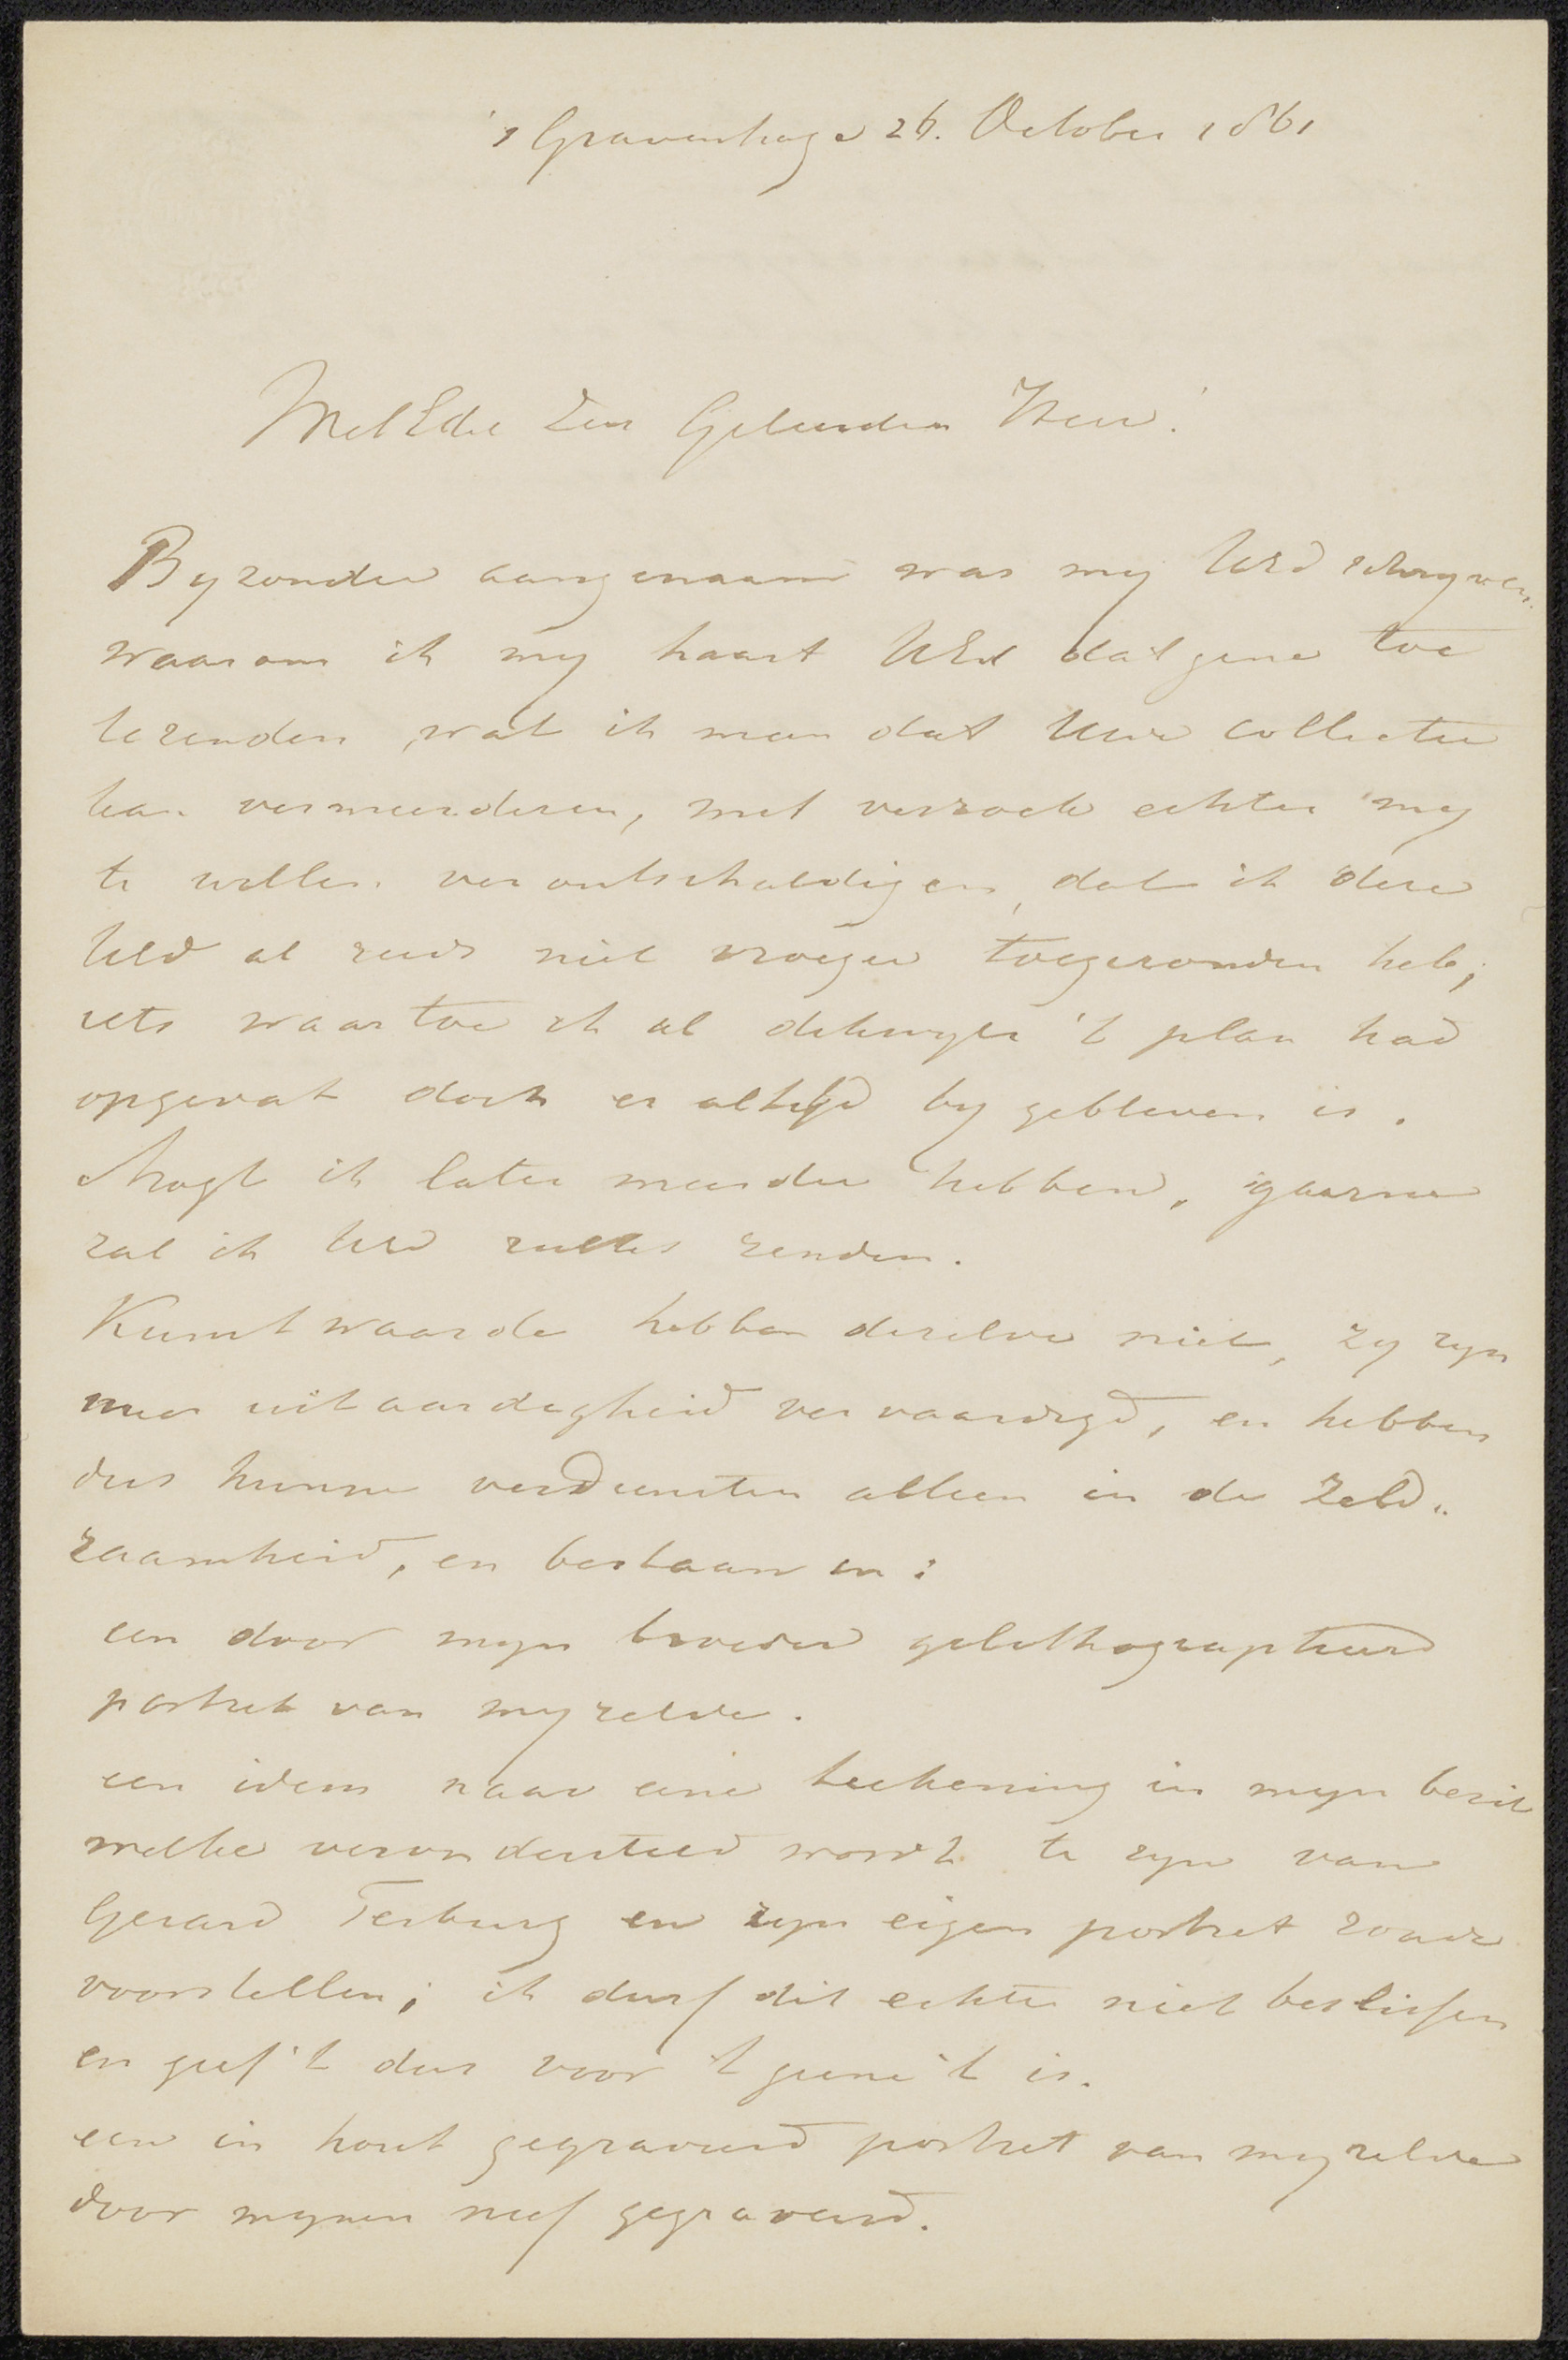 's Gravenhage 26. October 1861
WelEdele Zeer Geleerden Heer!
Byzonder aangenaam was my UEd schryven.
waarom ik my haast UEd datgene toe
te zenden, wat ik meen dat Uwe collectie
kan vermeerderen, met verzoek echter my
te willen verontschuldigen, dat ik deze
UEd al reeds niet vroeger toegezonden heb;
iets waartoe ik al dikwyls 't plan had
opgevat doch er altyd by gebleven is.
Mogt ik later meerder hebben, gaarne
zal ik UEd zulks zenden.
Kunstwaarde hebben dezelve niet, zy zyn
meer uit aardigheid vervaardigd, en hebben
dus hunne verdiensten alleen in de zeld„
zaamheid, en bestaan in:
een door myn broeder gelithographieerd
portret van myzelve.
een idem naar eene teekening in myn bezit
welke verondersteld wordt te zyn van
Gerard Terburg en zyn eigen portret zoude
voorstellen; ik durf dit echter niet beslissen
en geef 't dus voor 't geene 't is.
een in hout gegraveerd portret van myzelve
door mynen neef gegraveerd.